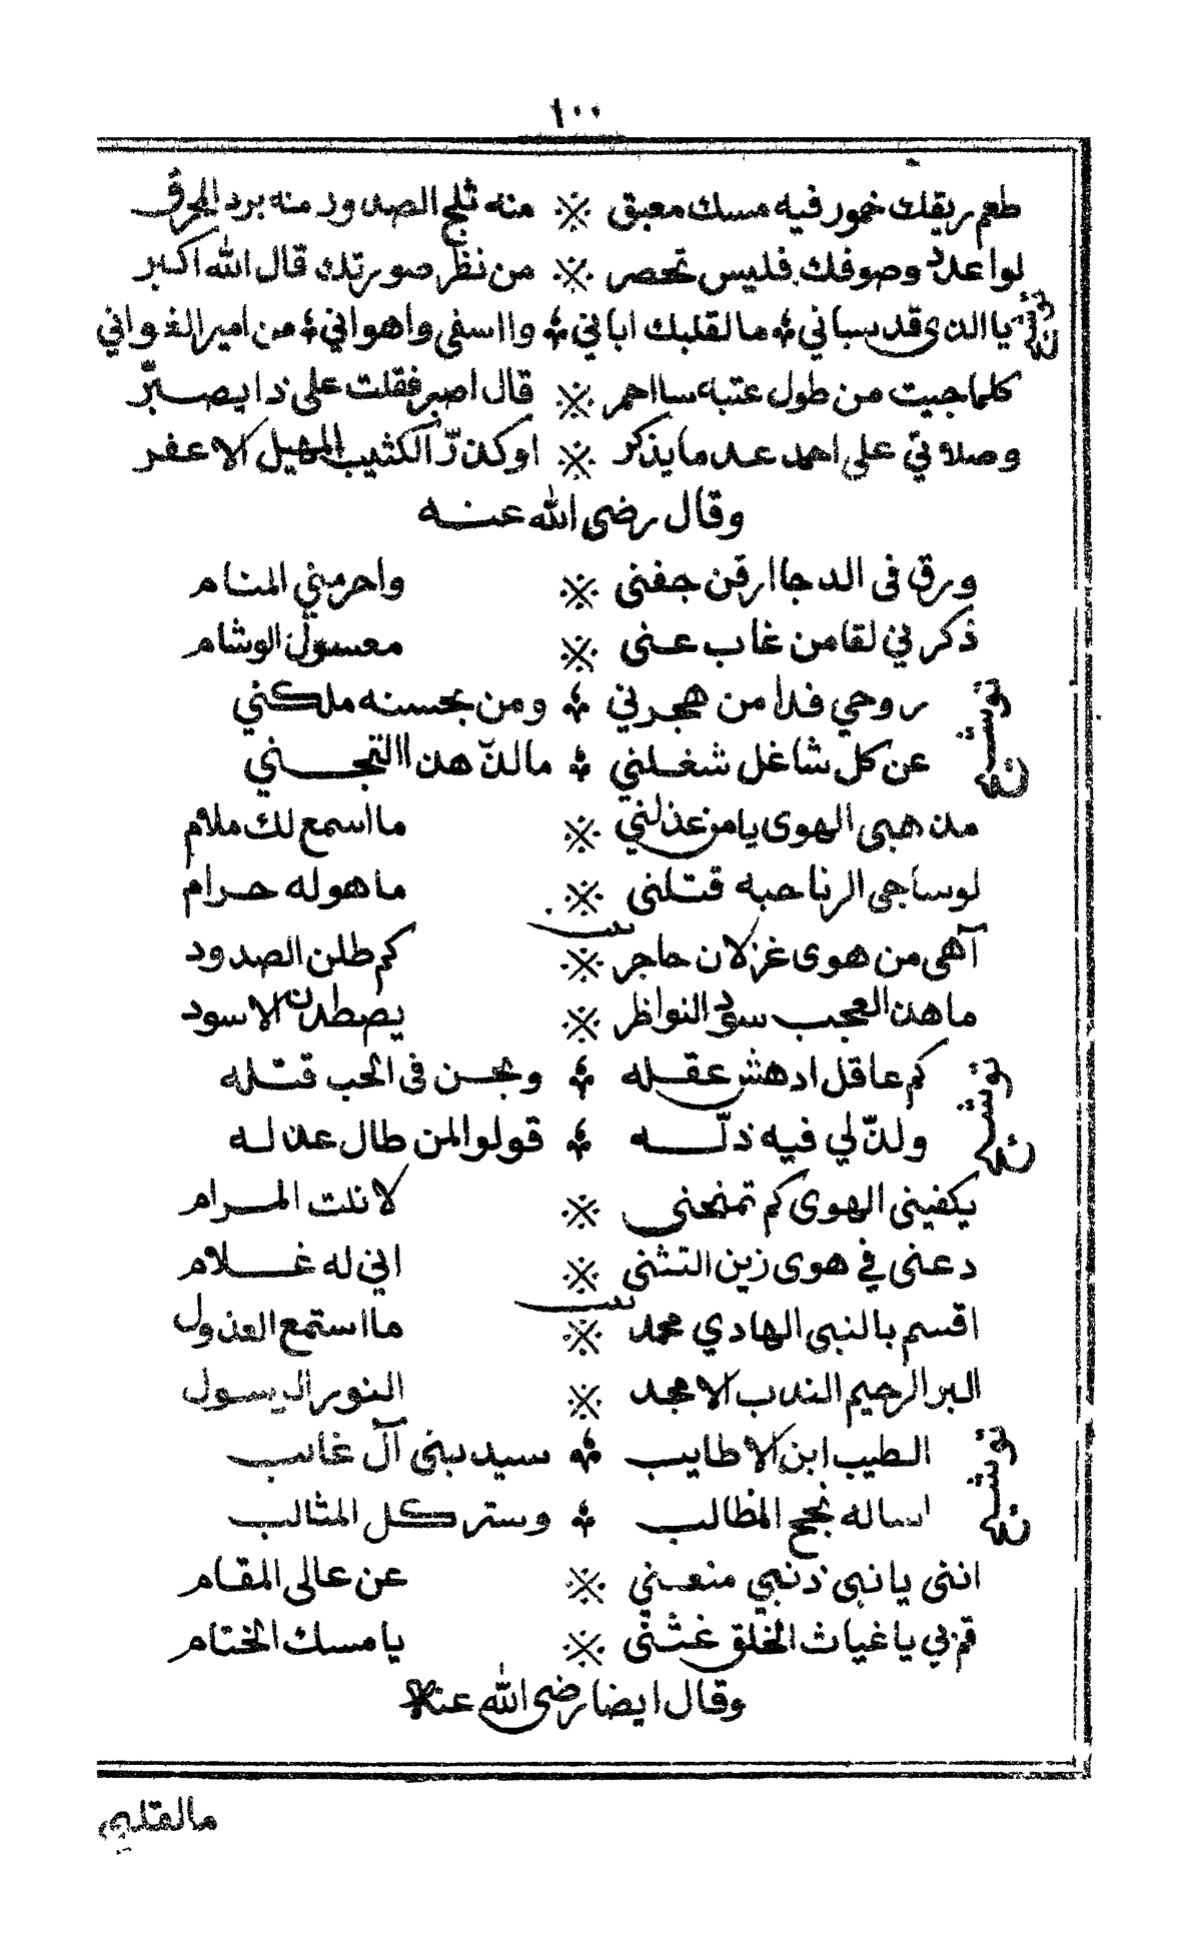 ١٠٠
طعم ريقك خمور فيه مسك معبق ※ منه ثلج الصدور منه برد الحرق
لو اعدد وصوفك فليس تحصر ※ من نظر صورتك قال الله اكبر
توشيح يا الذى قد سباني ⚜ ما لقلبك اباني ⚜ وا اسفى واهواني ⚜ من امير الغواني
كلما جيت من طول عتبه سا احمر ※ قال اصبر فقلت على ذا يصبّر
وصلاتي على احمد عد ما يذكر ※ او كذرّ الكثيب المهيل الاعفر
وقال رضى الله عنه
ورق فى الدجا ارقن جفنى ※ واحرمنني المنام
ذكرني لقا من غاب عنى ※ معسول الوشام
توشيح
روحي فدا من هجرني ⚜ ومن بحسنه ملكني
عن كل شاغل شغلني ⚜ ما لذّ هذا التجني
مذهبى الهوى يا من عذلني ※ ما اسمع لك ملام
لو ساجى الرنا حبه قتلنى ※ ما هو له حرام
بيت
آهى من هوى غزلان حاجر ※ كم طلن الصدود
ما هذا العجب سود النواظر ※ يصطدن الاسود
توشيح
كم عاقل ادهش عقله ⚜ ونحن فى الحب قتله
ولذّ لي فيه ذلّه ⚜ قولوا لمن طال عذله
يكفينى الهوى كم تمنحنى ※ لا نلت المرام
دعنى في هوى زين التثنى ※ اني له غلام
بيت
اقسم بالنبى الهادي محمد ※ ما استمع العذول
البر الرحيم الندب الامجد ※ النور الرسول
توشيح
الطيب ابن الاطايب ⚜ سيد بنى آل غالب
اساله نجح المطالب ⚜ وستر كل المثالب
اننى يا نبى ذنبي منعني ※ عن عالى المقام
قم بي يا غياث الخلق غثنى ※ يا مسك الختام
وقال ايضا رضى الله عنه
ما لقلبي